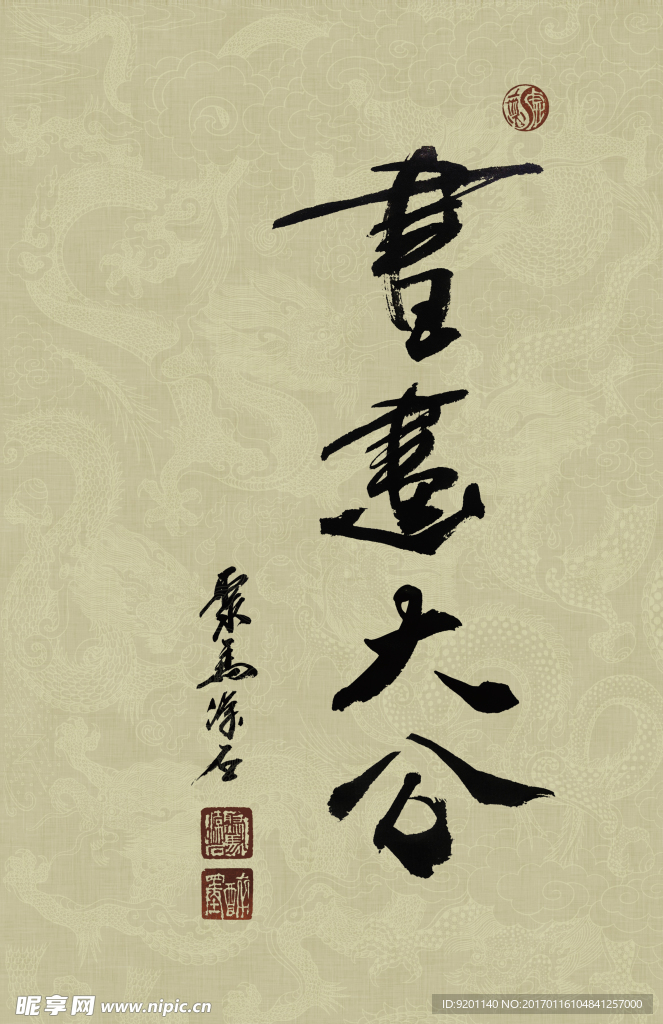 書畫大公
聚馬石
醉墨
昵享网 www.nipic.cn
ID:9201140 NO:20170116104841257000